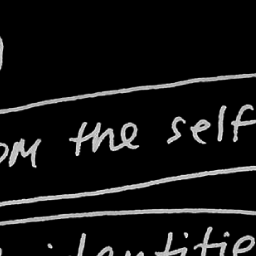 om the self
identitie